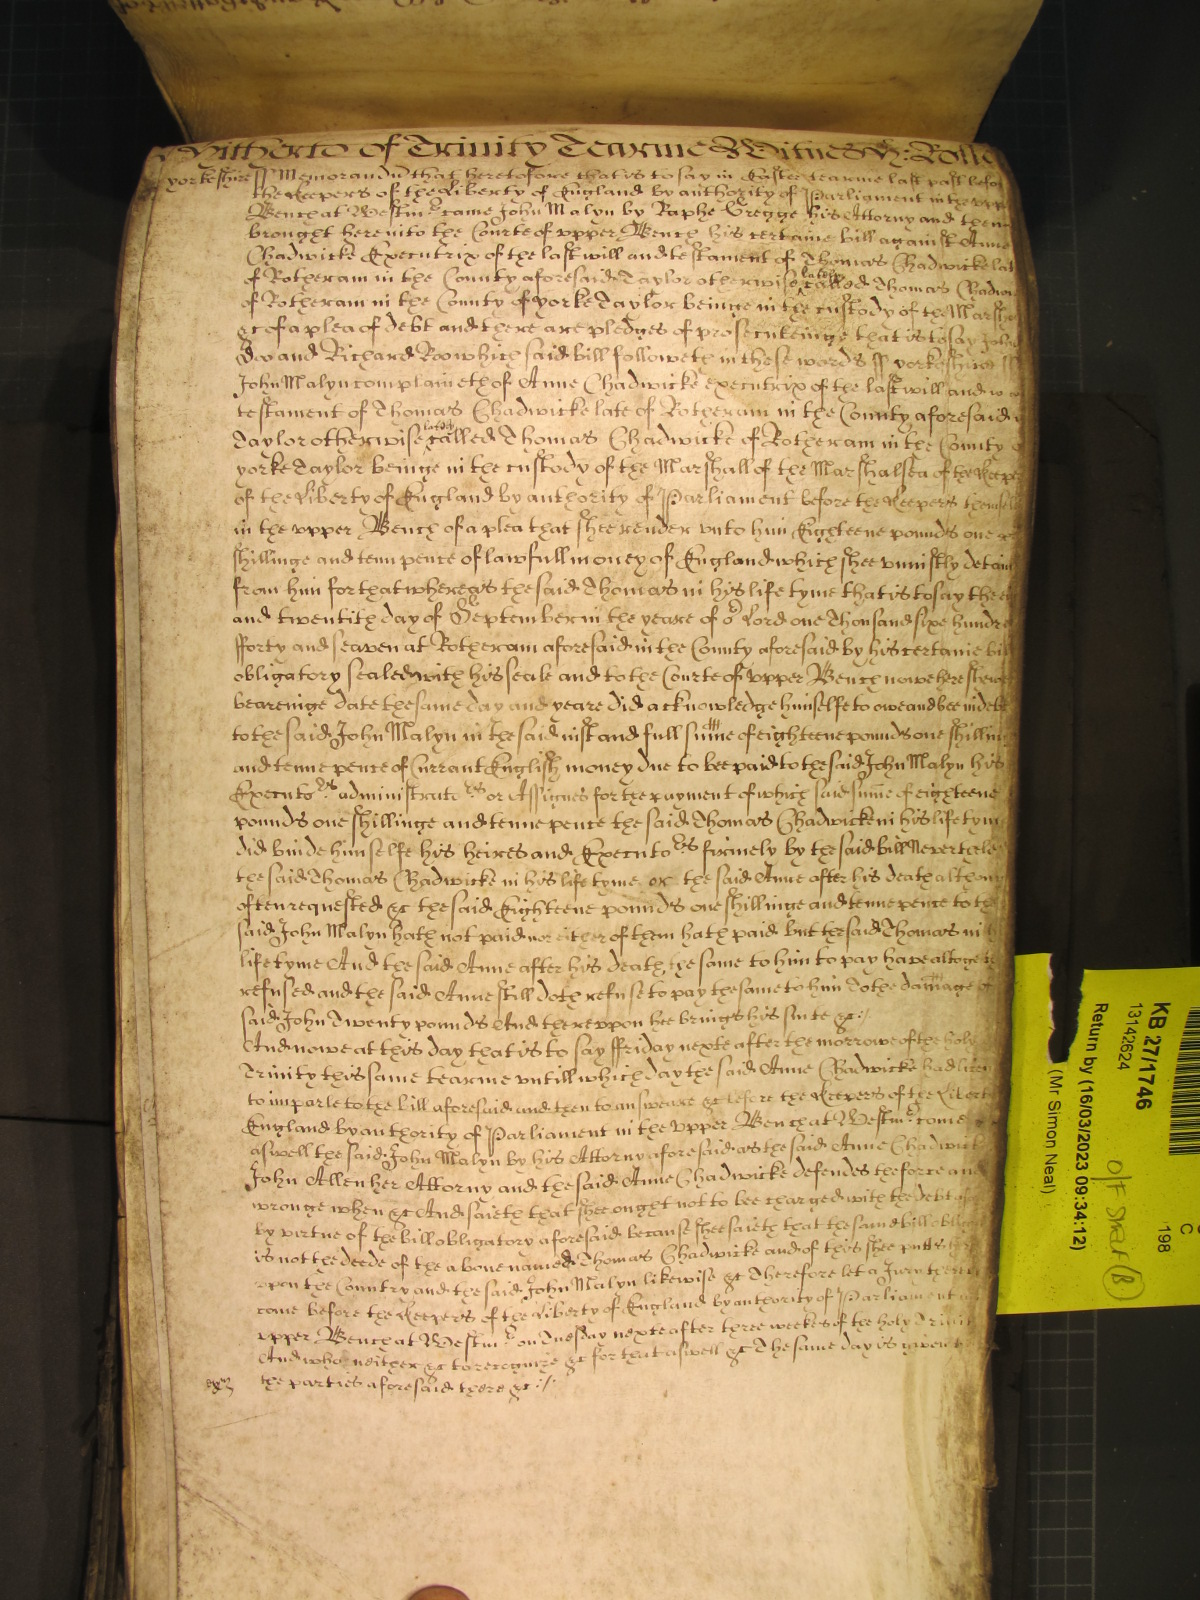 Hitherto of Trinity Tearme Witnes R: Rolle
yorkeshire ss Memorandu that heretofore that is to say in Easter tearme last past before
the Keepers of the Liberty of England by authority of Parliament in the upp
Bench at Westmr came John Malyn by Raphe Gregge his Attorny and then
brought here into the Courte of upper Bench his certaine bill against Anne
Chadwicke Executrix of the last will and testament of Thomas Chadwicke lat
of Rotheram in the County aforesaid Taylor otherwise lately called Thomas Chadw
of Rotheram in the County of yorke Taylor beinge in the custody of the Marsh
&c of a plea of debt and there are pledges of prosecuteinge that is to say John
Doo and Richard Roo which said bill followeth in these words ss yorkeshire ss
John Malyn complaineth of Anne Chadwicke executrix of the last will and
testament of Thomas Chadwicke late of Rotheram in the County aforesaid
Taylor otherwise lately called Thomas Chadwicke of Rotheram in the County o
yorke Taylor beinge in the custody of the Marshall of the Marshalsea of the Keepe
of the Liberty of England by authority of Parliament before the Keepers themse
in the upper Bench of a plea that shee render unto him Eighteene pounds one
shillinge and tenn pence of lawfull money of England which shee uniustly detain
from him for that whereas the said Thomas in his life tyme that is to say the
and twentith day of September in the yeare of or Lord one Thousand sixe hundre
fforty and seaven at Rotheram aforesaid in the County aforesaid by his certaine bil
obligatory sealed with his seale and to the Courte of upper Bench nowe here shewe
beareinge date the same day and yeare did acknowledge himselfe to owe and bee indeb
to the said John Malyn in the said iust and full summe of eighteene pounds one shillin
and tenne pence of Currant English money due to bee paid to the said John Malyn his
Executors administrators or Assignes for the payment of which said summe of eighteene
pounds one shillinge and tenne pence the said Thomas Chadwicke in his life tym
did binde himselfe his heires and Executors firmely by the said bill Neverthele
the said Thomas Chadwicke in his life tyme or the said Anne after his death althou
often requested &c the said Eighteene pounds one shillinge and tenne pence to th
said John Malyn hath not paid nor either of them hath paid but the said Thomas in h
life tyme And the said Anne after his death the same to him to pay have altogeth
refused and the said Anne still doth refuse to pay the same to him To the damage of
said John Twenty pounds And thereupon hee brings his suite &c:/
And nowe at this day that is to say ffriday nexte after the morrowe of the holy
Trinity this same tearme untill which day the said Anne Chadwicke had licen
to imparle to the bill aforesaid and then to answeare &c before the Keepers of the Libert
England by authority of Parliament in the upper Bench at Westmr come
aswell the said John Malyn by his Attorny aforesaid as the said Anne Chadwick
John Allen her Attorny and the said Anne Chadwicke defendes the force and
wronge when &c And saieth that shee ought not to bee charged with the debt
by virtue of the bill obligatory aforesaid because shee saieth that the said bill oblig
is not the deede of the above named Thomas Chadwicke and of this shee putts
upon the Country and the said John Malyn likewise &c Therefore let a Jury there
come before the Keepers of the Liberty of England by authority of Parliament
upper Bench at Westmr on Tuesday nexte after three weekes of the holy Trinit
And who neither &c to recognize &c for that aswell &c The same day is given
the parties aforesaid there &c :/
exr
KB 27/1746
13142624
Return by (16/03/2023 09:34:12)
(Mr Simon Neal)
C
198
O/F Shelf B